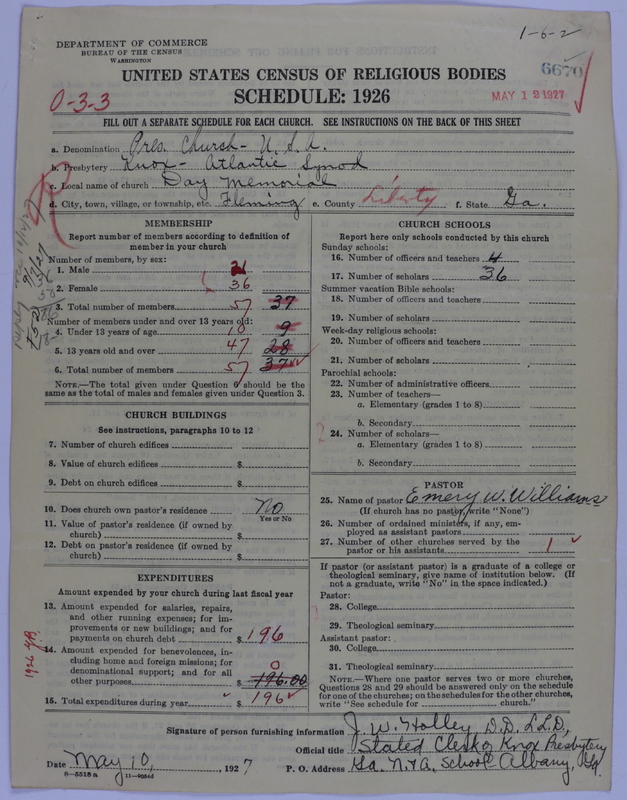 DEPARTMENT OF COMMERCE
BUREAU OF THE CENSUS
WASHINGTON
1-6-2
6670
UNITED STATES CENSUS OF RELIGIOUS BODIES
MAY 12 1927
0-3-3
SCHEDULE: 1926
FILL OUT A SEPARATE SCHEDULE FOR EACH CHURCH. SEE INSTRUCTIONS ON THE BACK OF THIS SHEET
a. Denomination Pres. Church - U.S.A.
b. Presbytery Knox - Atlantic Synod
c. Local name of church Day Memorial
d. City, town, village, or township, etc. Fleming e. County Liberty f. State Ga.
MEMBERSHIP
Report number of members according to definition of
member in your church
Number of members, by sex:
1. Male 21
2. Female 36
3. Total number of members 57 37
Number of members under and over 13 years old:
4. Under 13 years of age 10 9
5. 13 years old and over 47 28
6. Total number of members 57 37
NOTE.—The total given under Question 6 should be the
same as the total of males and females given under Question 3.
CHURCH BUILDINGS
See instructions, paragraphs 10 to 12
7. Number of church edifices
8. Value of church edifices $
9. Debt on church edifices $
10. Does church own pastor's residence No
Yes or No
11. Value of pastor's residence (if owned by
church) $
12. Debt on pastor's residence (if owned by
church) $
EXPENDITURES
Amount expended by your church during last fiscal year
13. Amount expended for salaries, repairs,
and other running expenses; for im-
provements or new buildings; and for
payments on church debt $ 196
14. Amount expended for benevolences, in-
cluding home and foreign missions; for
denominational support; and for all
other purposes $ 0 196.00
15. Total expenditures during year $ 196
CHURCH SCHOOLS
Report here only schools conducted by this church
Sunday schools:
16. Number of officers and teachers 4
17. Number of scholars 36
Summer vacation Bible schools:
18. Number of officers and teachers
19. Number of scholars
Week-day religious schools:
20. Number of officers and teachers
21. Number of scholars
Parochial schools:
22. Number of administrative officers
23. Number of teachers—
a. Elementary (grades 1 to 8)
b. Secondary
24. Number of scholars—
a. Elementary (grades 1 to 8)
b. Secondary
PASTOR
25. Name of pastor Emery W. Williams
(If church has no pastor, write "None")
26. Number of ordained ministers, if any, em-
ployed as assistant pastors
27. Number of other churches served by the
pastor or his assistants 1
If pastor (or assistant pastor) is a graduate of a college or
theological seminary, give name of institution below. (If
not a graduate, write "No" in the space indicated.)
Pastor:
28. College
29. Theological seminary
Assistant pastor:
30. College
31. Theological seminary
NOTE.—Where one pastor serves two or more churches,
Questions 28 and 29 should be answered only on the schedule
for one of the churches; on the schedules for the other churches,
write "See schedule for church."
Signature of person furnishing information J. W. Holley D.D. LL.D.,
Official title Stated Clerk of Knox Presbytery
Date May 10, 1927 P. O. Address Ga. N. & A. School Albany, Ga.
8-5518a 11-9054d